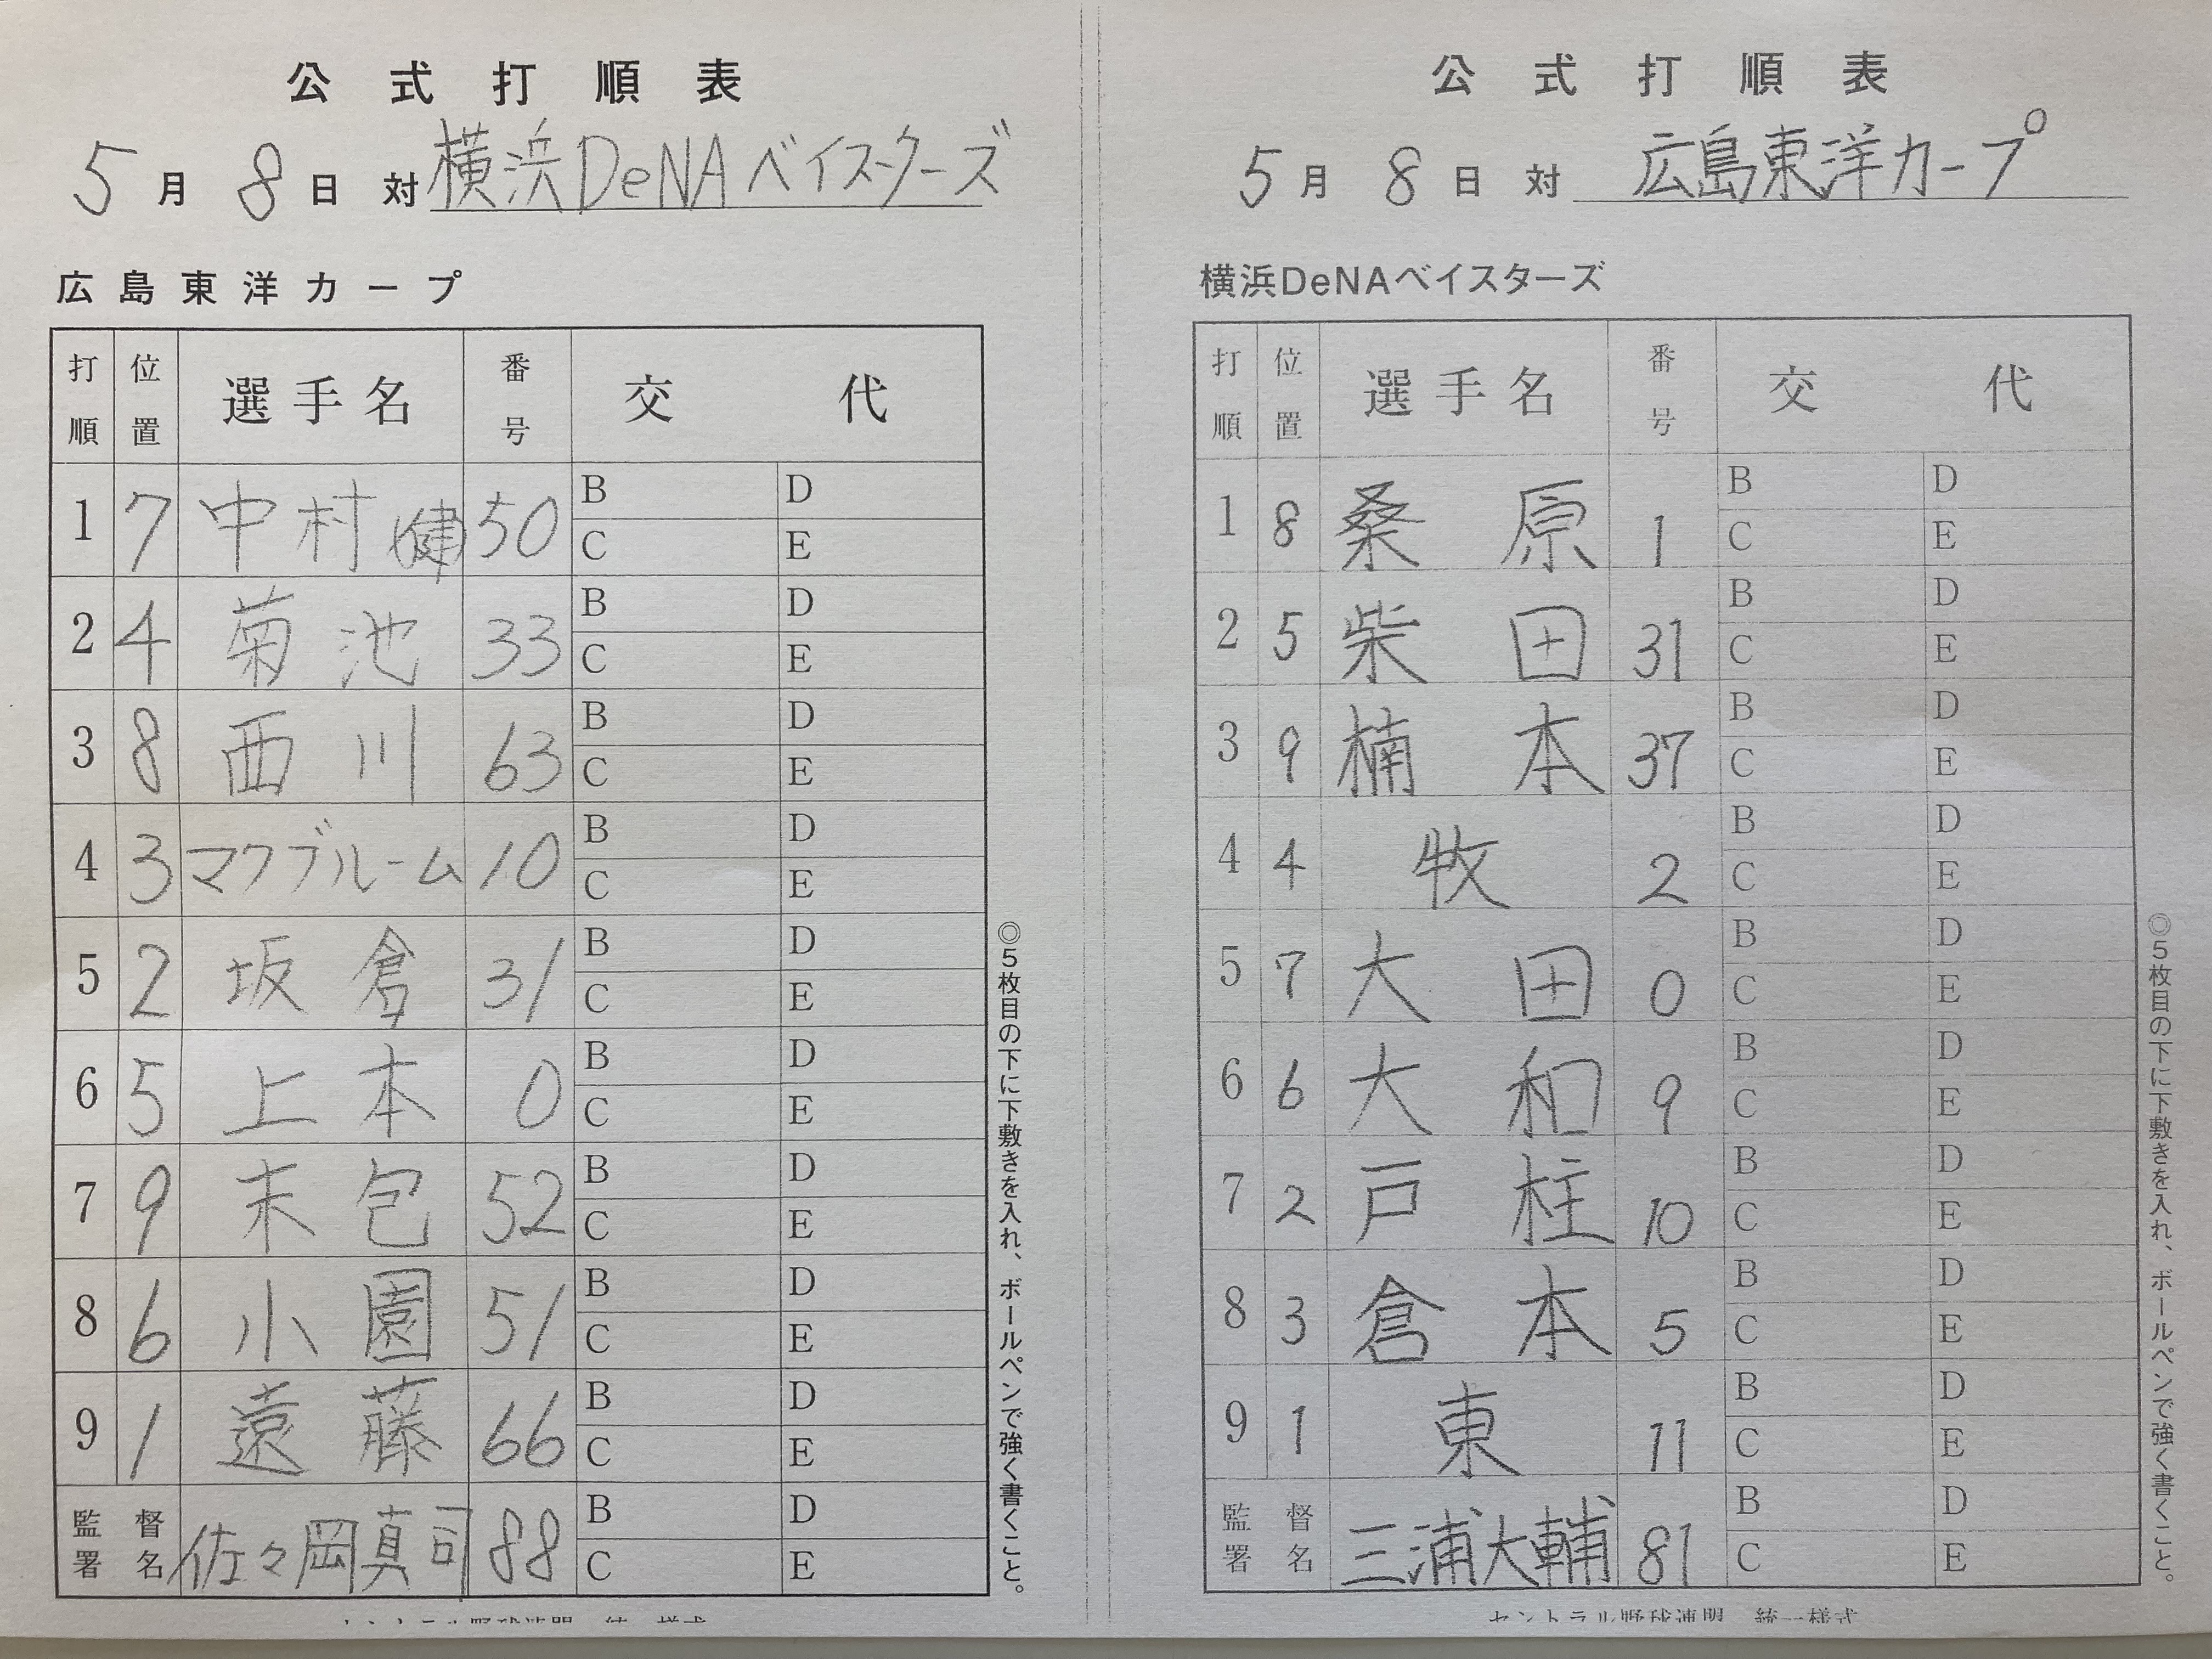 公式打順表
5月8日 対 横浜DeNAベイスターズ
広島東洋カープ
打順 位置 選手名 番号 交代
1 7 中村健 50 B D C E
2 4 菊池 33 B D C E
3 8 西川 63 B D C E
4 3 マクブルーム 10 B D C E
5 2 坂倉 31 B D C E
6 5 上本 0 B D C E
7 9 末包 52 B D C E
8 6 小園 51 B D C E
9 1 遠藤 66 B D C E
監督署名 佐々岡真司 88 B D C E
◎5枚目の下に下敷きを入れ、ボールペンで強く書くこと。
セントラル野球連盟 統一様式
公式打順表
5月8日 対 広島東洋カープ
横浜DeNAベイスターズ
打順 位置 選手名 番号 交代
1 8 桑原 1 B D C E
2 5 柴田 31 B D C E
3 9 楠本 37 B D C E
4 4 牧 2 B D C E
5 7 大田 0 B D C E
6 6 大和 9 B D C E
7 2 戸柱 10 B D C E
8 3 倉本 5 B D C E
9 1 東 11 B D C E
監督署名 三浦大輔 81 B D C E
◎5枚目の下に下敷きを入れ、ボールペンで強く書くこと。
セントラル野球連盟 統一様式